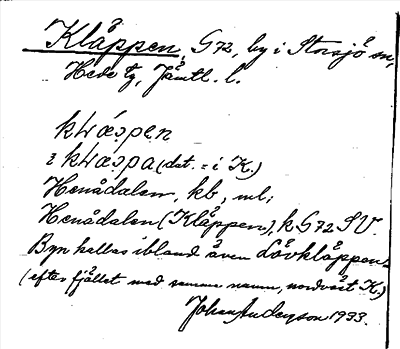 Kläppen, G72, by i Storsjö sn,
Hede tg, Jämtl. l.
i (dat. = i K.)
Henådalen, kb, ml;
Henådalen (Kläppen), k G72 SV
Byn kallas ibland även Lövkläppen
(efter fjället med samma namn, nordväst K.)
Johan Anderson 1933.